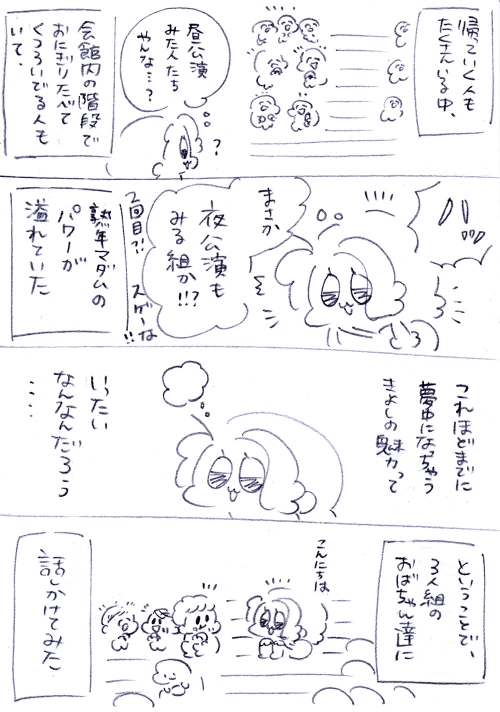 帰っていく人も
たくさんいる中、
昼公演
みた人たち
やんな…?
?
会館内の階段で
おにぎりたべて
くつろいでる人も
いて、
ハッ
まさか
夜公演も
みる組か!!?
2回目?!
スゲーな!!
熟年マダムの
パワーが
溢れていた
これほどまでに
夢中になっちゃう
きよしの魅力って
いったい
なんなんだろう
……
ということで、
3人組の
おばちゃん達に
こんにちは
話しかけてみた